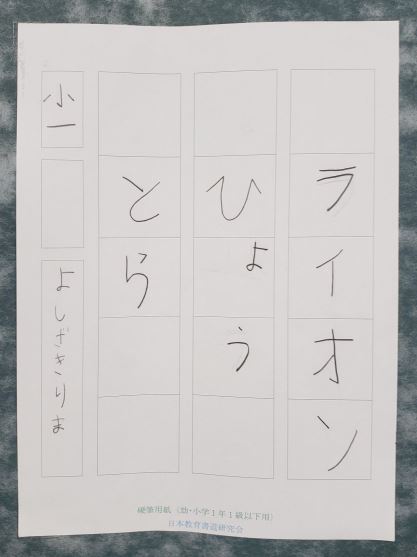 ライオン
ひょう
とら
小一
よしざきりま
硬筆用紙（幼・小学1年1級以下用）
日本教育書道研究会